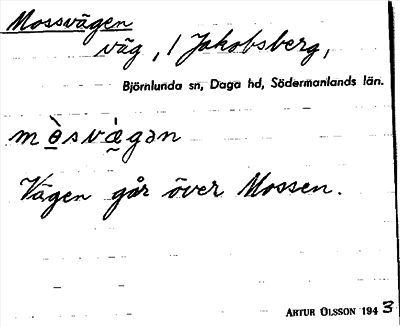 Mossvägen
väg, i Jakobsberg,
Björnlunda sn, Daga hd, Södermanlands län.
mò̖svá̰gən
Vägen går över Mossen.
ARTUR OLSSON 1943